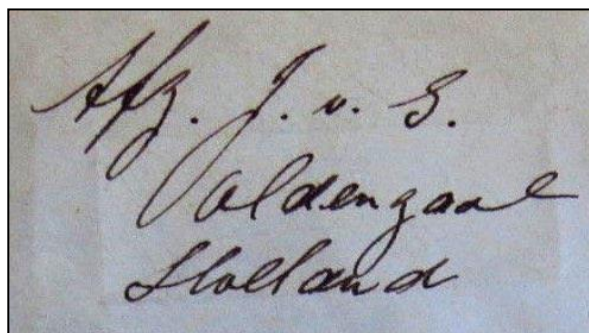 Afz. J. v. G.
Oldengaal
Holland